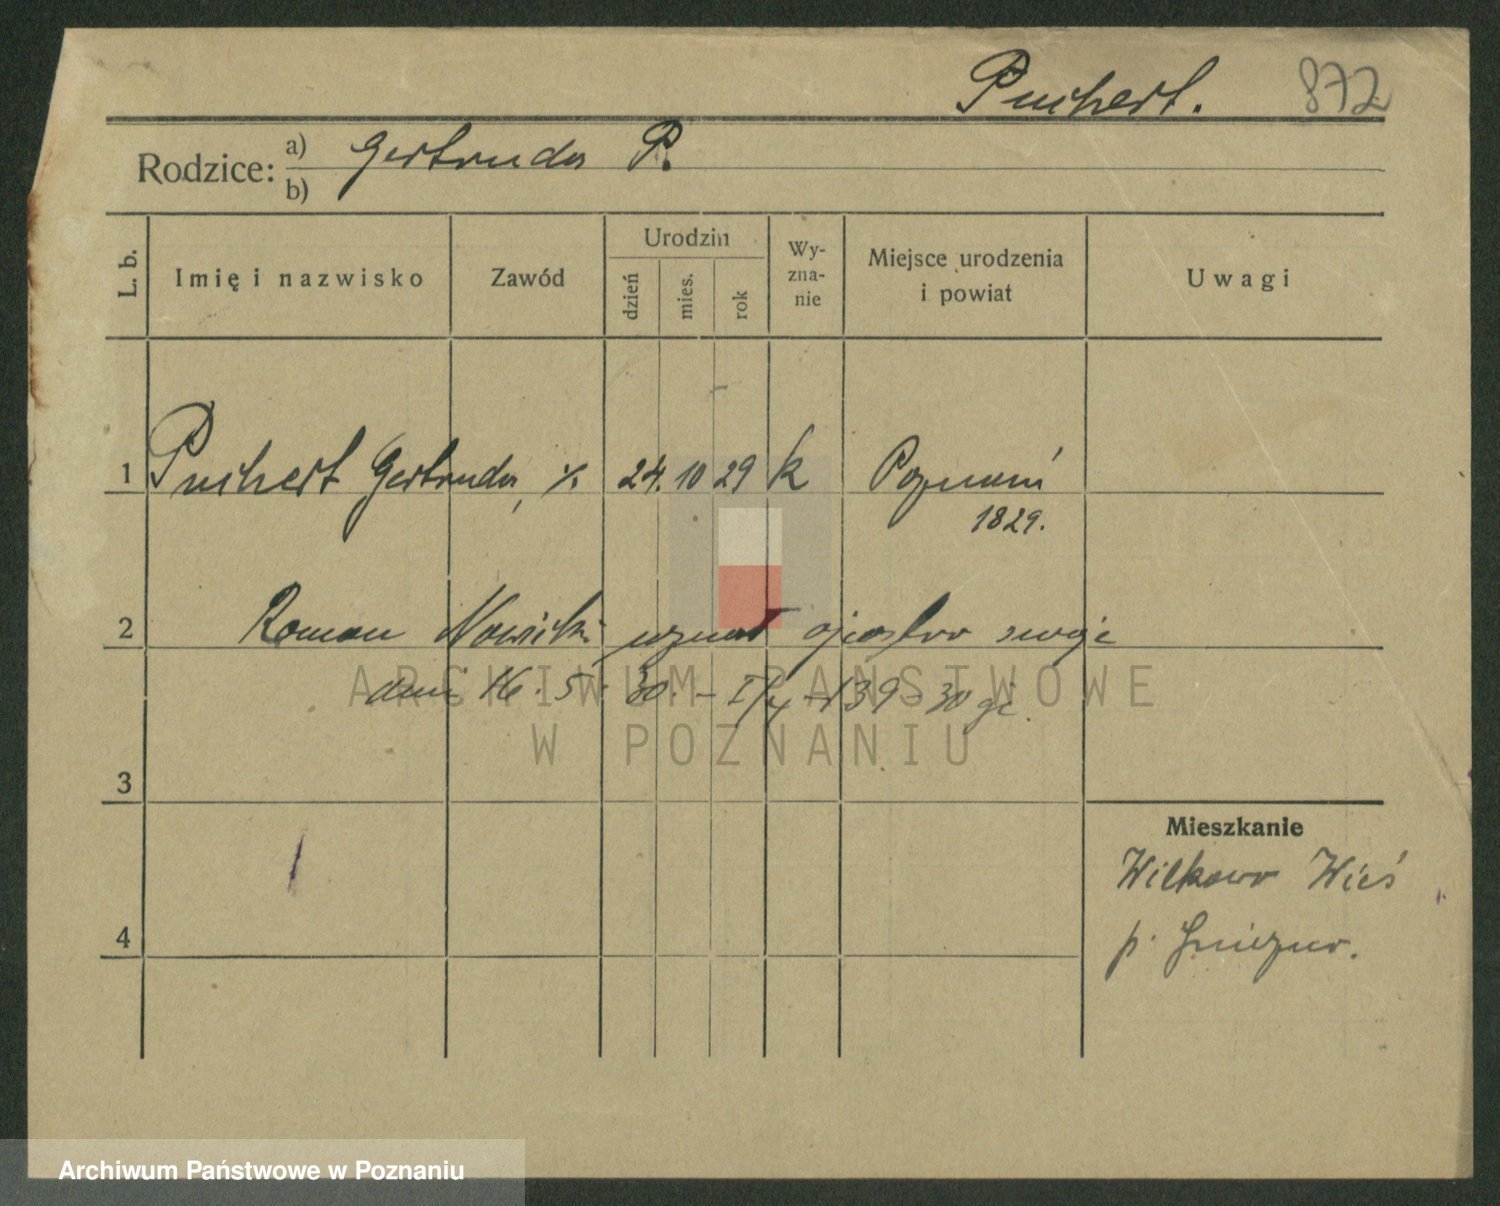 Puchert. 872
Rodzice: a) Gertruda P.
b)
L. b. Imię i nazwisko Zawód Urodzin dzień mies. rok Wy-zna-nie Miejsce urodzenia i powiat Uwagi
1 Puchert Gertruda, x. 24. 10 29 k Poznań
1829.
2 Roman Nowicki uznał ojcostwo swoje
dnia 16. 5. 30. - 139-30
3
Mieszkanie
Wilkowo Wieś
4 p. Gniezno.
ARCHIWUM PAŃSTWOWE
W POZNANIU
Archiwum Państwowe w Poznaniu